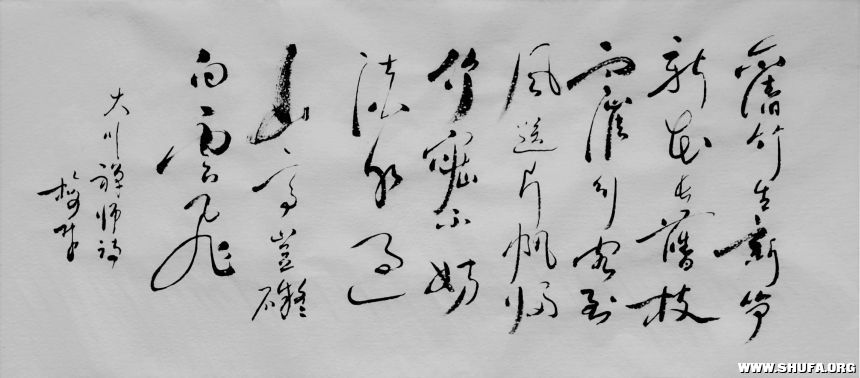 舊竹生新笋
新花长舊枝
雨催行客到
風送片帆归
竹密不妨
流水过
山高豈礙
白雲飞
大川禪师诗
WWW.SHUFA.ORG